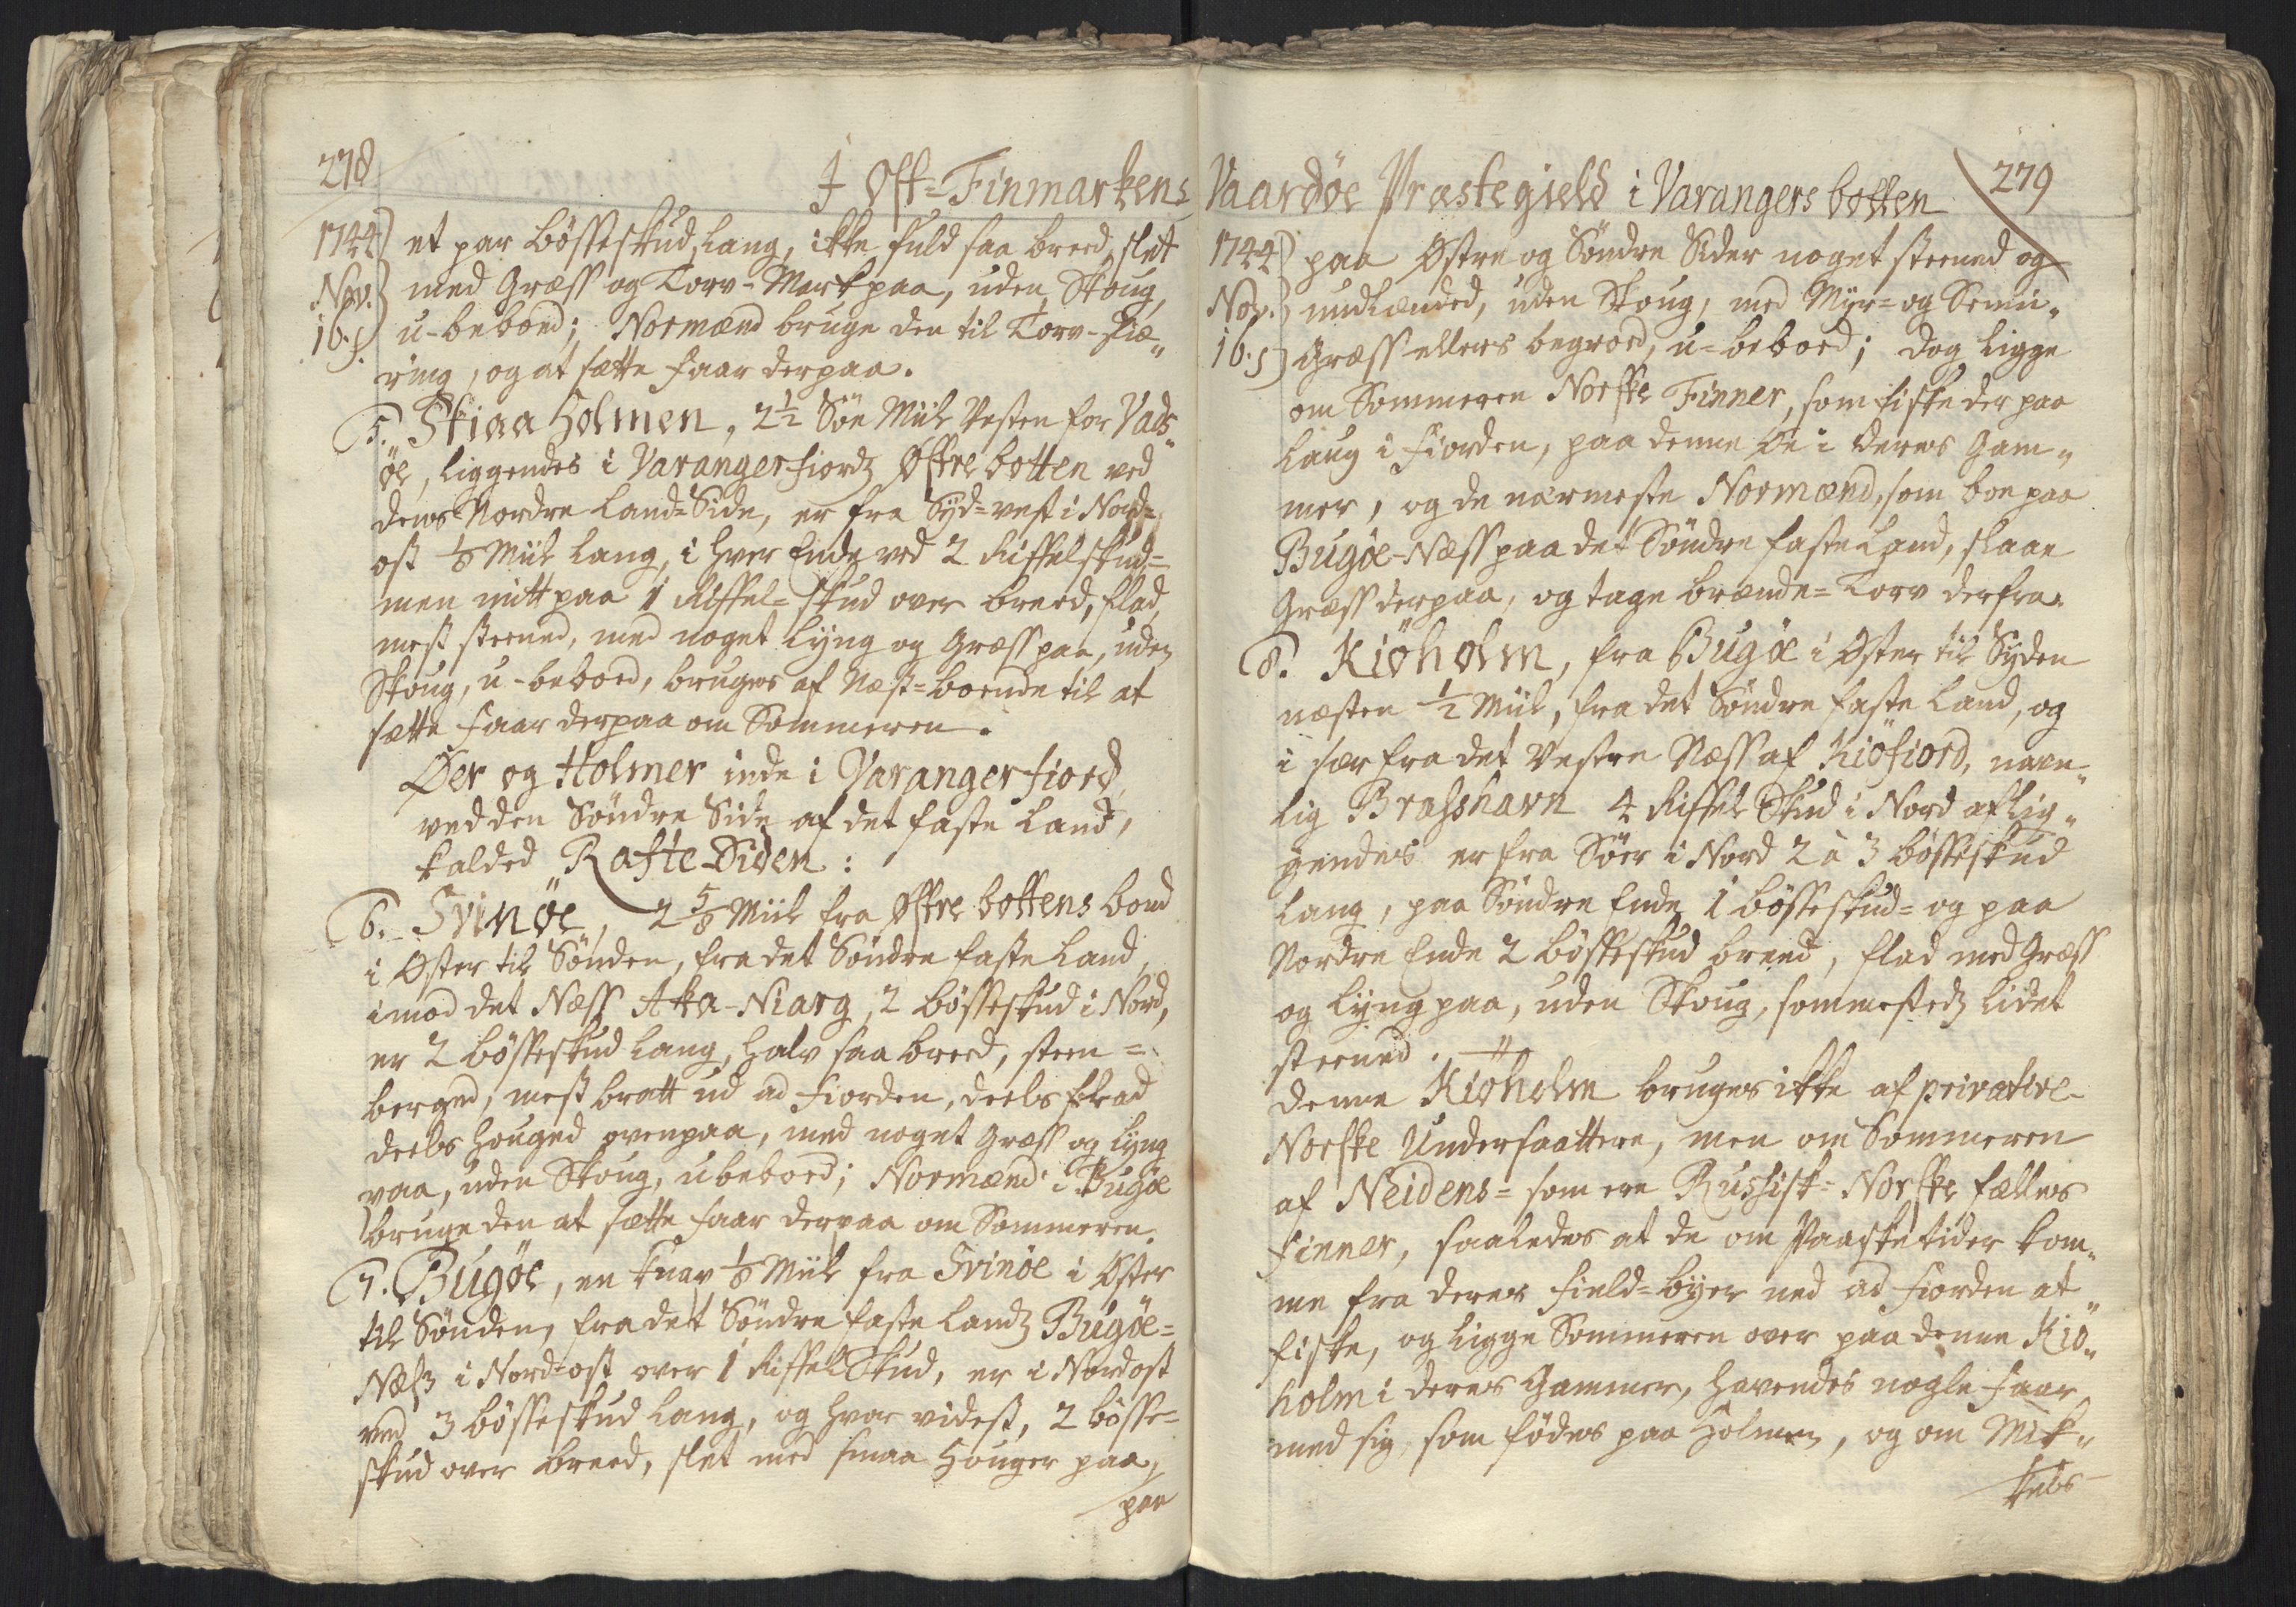 278
I Øst-Finmarkens
1744 et par bösseskud lang, ikke fuld saa breed, slet
Nov. med Græss og Torv-Mark paa, uden Skoug,
16. u-beboed; Normænd bruge den til Torv-skiæ„
ring, og at sætte faar derpaa.
5. Skiaa Holmen, 2 1/2 Söe Miil Vesten for Vads„
öe, liggendes i Varangerfiordz Østre botten ved
dens Nordre Land-Side, er fra Syd-vest i Nord-
ost 1/8 Miil lang, i hver Ende ved 2 Riffelskud-
men mitt paa 1 Riffel-skud over breed, flad,
mest steened, med noget Lyng og Græss paa, uden
Skoug, u-beboed, bruges af Næst-boende til at
sætte faar derpaa om Sommeren.
Øer og Holmer inde i Varangerfiord,
ved den Söndre Side af det faste Land,
kalded Rafte-Siden:
6. Svinöe, 2 5/8 Miil fra Østre bottens bond
i Öster til Sönden, fra det Söndre faste Land,
imod det Næss Aka-Niarg, 2 bösseskud i Nord,
er 2 bösseskud lang, halv saa breed, steen-
berged, mest bratt ud ad Fiorden, deels flad
deels houged ovenpaa, med noget Græss og Lyng
paa, uden Skoug, ubeboed; Normænd i Bugöe
bruge den at sætte faar derpaa om Sommeren.
7. Bugöe, en knap 1/8 Miil fra Svinöe i Öster
til Sönden, fra det Söndre faste Landz Bugöe-
Næss i Nord-ost over 1 Riffel Skud, er i Nordost
ved 3 bösseskud lang, og hvor videst, 2 bösse-
skud over breed, slet med smaa Houger paa,
paa
Vaardöe Præstegield i Varangers botten 279
1744 paa Östre og Söndre Sider noget steened og
Nov. uudlændet, uden Skoug, med Myr- og Sennu„
16. Græss ellers begroed, u-beboed; dog ligge
om Sommeren Norske Finner, som fiske der paa
Laug i Fiorden, paa denne Öe i deres Gam„
mer, og de nærmeste Normænd, som boe paa
Bugöe-Næss paa det Söndre faste Land, slaae
Græss derpaa, og tage brænde-Torv derfra.
8. Kiöholm, fra Bugöe i Öster til Syden
næsten 1/2 Miil, fra det Söndre faste Land, og
i sær fra det Vestre Næss af Kiöfiord, navn„
lig Brasshavn 4 Riffel Skud i Nord aflig„
gendes er fra Söer i Nord 2 à 3 bösseskud
lang, paa Söndre Ende 1 bösseskud- og paa
Nordre Ende 2 bösseskud breed, flad med Græss
og Lyng paa, uden Skoug, sommestedz lidet
steened.
Denne Kiöholm bruges ikke af privative
Norske Undersaattere, men om Sommeren
af Neidens- som ere Russisk-Norske fælles
Finner, saaledes at de om Paasketider kom„
me fra deres Field-byer ned ad Fiorden at
fiske, og ligge Sommeren over paa denne Kiö„
holm i deres Gammer, havendes nogle faar
med sig, som födes paa Holmen, og om Mik„
kels